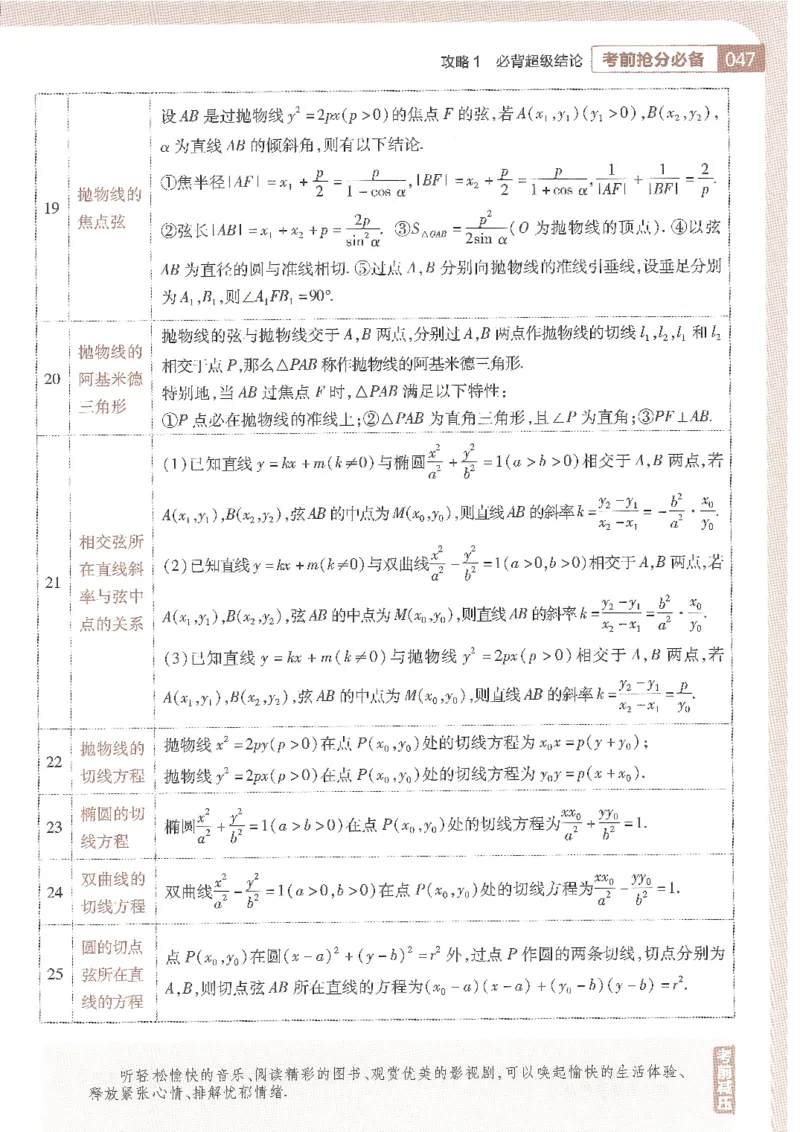 攻略1 必背超级结论 考前抢分必备 047
19
抛物线的
焦点弦
设AB是过抛物线y²=2px(p>0)的焦点F的弦,若A(x₁,y₁)(y₁>0),B(x₂,y₂),
α为直线AB的倾斜角,则有以下结论.
①焦半径|AF|=x₁+p/2=p/(1-cos α),|BF|=x₂+p/2=p/(1+cos α),1/|AF|+1/|BF|=2/p.
②弦长|AB|=x₁+x₂+p=2p/sin²α. ③S△OAB=p²/(2sin α)(O为抛物线的顶点). ④以弦
AB为直径的圆与准线相切. ⑤过点A,B分别向抛物线的准线引垂线,设垂足分别
为A₁,B₁,则∠A₁FB₁=90°.
20
抛物线的
阿基米德
三角形
抛物线的弦与抛物线交于A,B两点,分别过A,B两点作抛物线的切线l₁,l₂,l₁和l₂
相交于点P,那么△PAB称作抛物线的阿基米德三角形.
特别地,当AB过焦点F时,△PAB满足以下特性:
①P点必在抛物线的准线上;②△PAB为直角三角形,且∠P为直角;③PF⊥AB.
21
相交弦所
在直线斜
率与弦中
点的关系
(1)已知直线y=kx+m(k≠0)与椭圆x²/a²+y²/b²=1(a>b>0)相交于A,B两点,若
A(x₁,y₁),B(x₂,y₂),弦AB的中点为M(x₀,y₀),则直线AB的斜率k=(y₂-y₁)/(x₂-x₁)=-b²/a²·x₀/y₀.
(2)已知直线y=kx+m(k≠0)与双曲线x²/a²-y²/b²=1(a>0,b>0)相交于A,B两点,若
A(x₁,y₁),B(x₂,y₂),弦AB的中点为M(x₀,y₀),则直线AB的斜率k=(y₂-y₁)/(x₂-x₁)=b²/a²·x₀/y₀.
(3)已知直线y=kx+m(k≠0)与抛物线y²=2px(p>0)相交于A,B两点,若
A(x₁,y₁),B(x₂,y₂),弦AB的中点为M(x₀,y₀),则直线AB的斜率k=(y₂-y₁)/(x₂-x₁)=p/y₀.
22
抛物线的
切线方程
抛物线x²=2py(p>0)在点P(x₀,y₀)处的切线方程为x₀x=p(y+y₀);
抛物线y²=2px(p>0)在点P(x₀,y₀)处的切线方程为y₀y=p(x+x₀).
23
椭圆的切
线方程
椭圆x²/a²+y²/b²=1(a>b>0)在点P(x₀,y₀)处的切线方程为xx₀/a²+yy₀/b²=1.
24
双曲线的
切线方程
双曲线x²/a²-y²/b²=1(a>0,b>0)在点P(x₀,y₀)处的切线方程为xx₀/a²-yy₀/b²=1.
25
圆的切点
弦所在直
线的方程
点P(x₀,y₀)在圆(x-a)²+(y-b)²=r²外,过点P作圆的两条切线,切点分别为
A,B,则切点弦AB所在直线的方程为(x₀-a)(x-a)+(y₀-b)(y-b)=r².
听轻松愉快的音乐、阅读精彩的图书、观赏优美的影视剧,可以唤起愉快的生活体验、
释放紧张心情、排解忧郁情绪.
考前减压